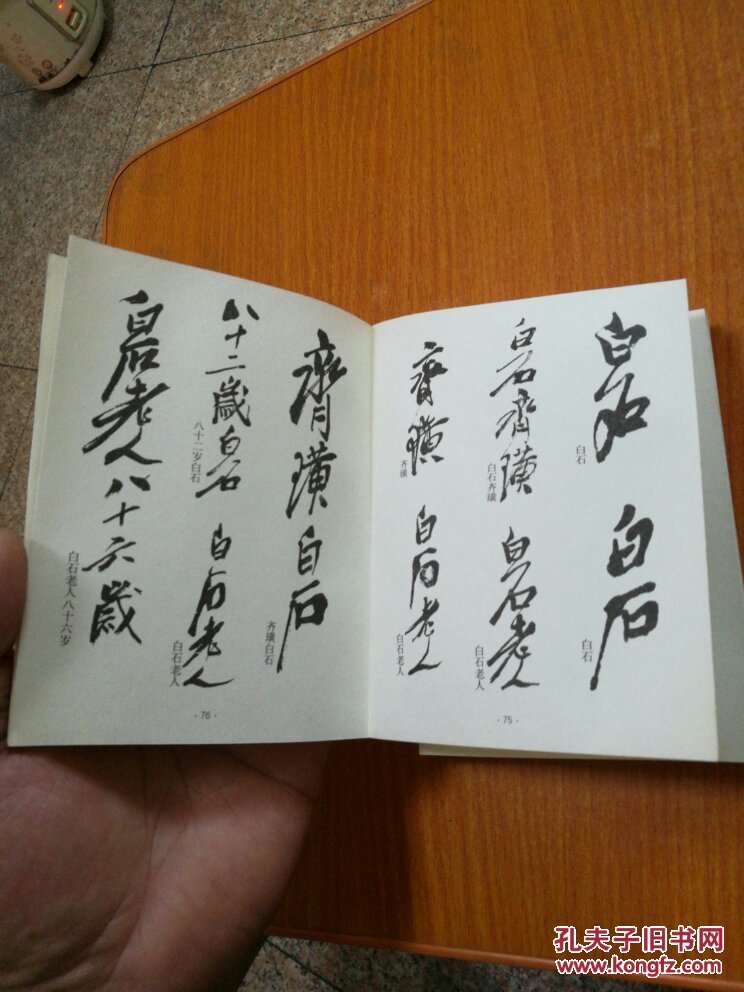 白石
白石
白石
白石
白石齊璜
白石齐璜
白石老人
白石老人
齊璜
齐璜
白石老人
白石老人
·75·
齊璜白石
齐璜白石
八十二歲白石
八十二岁白石
白石老人
白石老人
白石老人八十六歲
白石老人八十六岁
·76·
孔夫子旧书网
www.kongfz.com